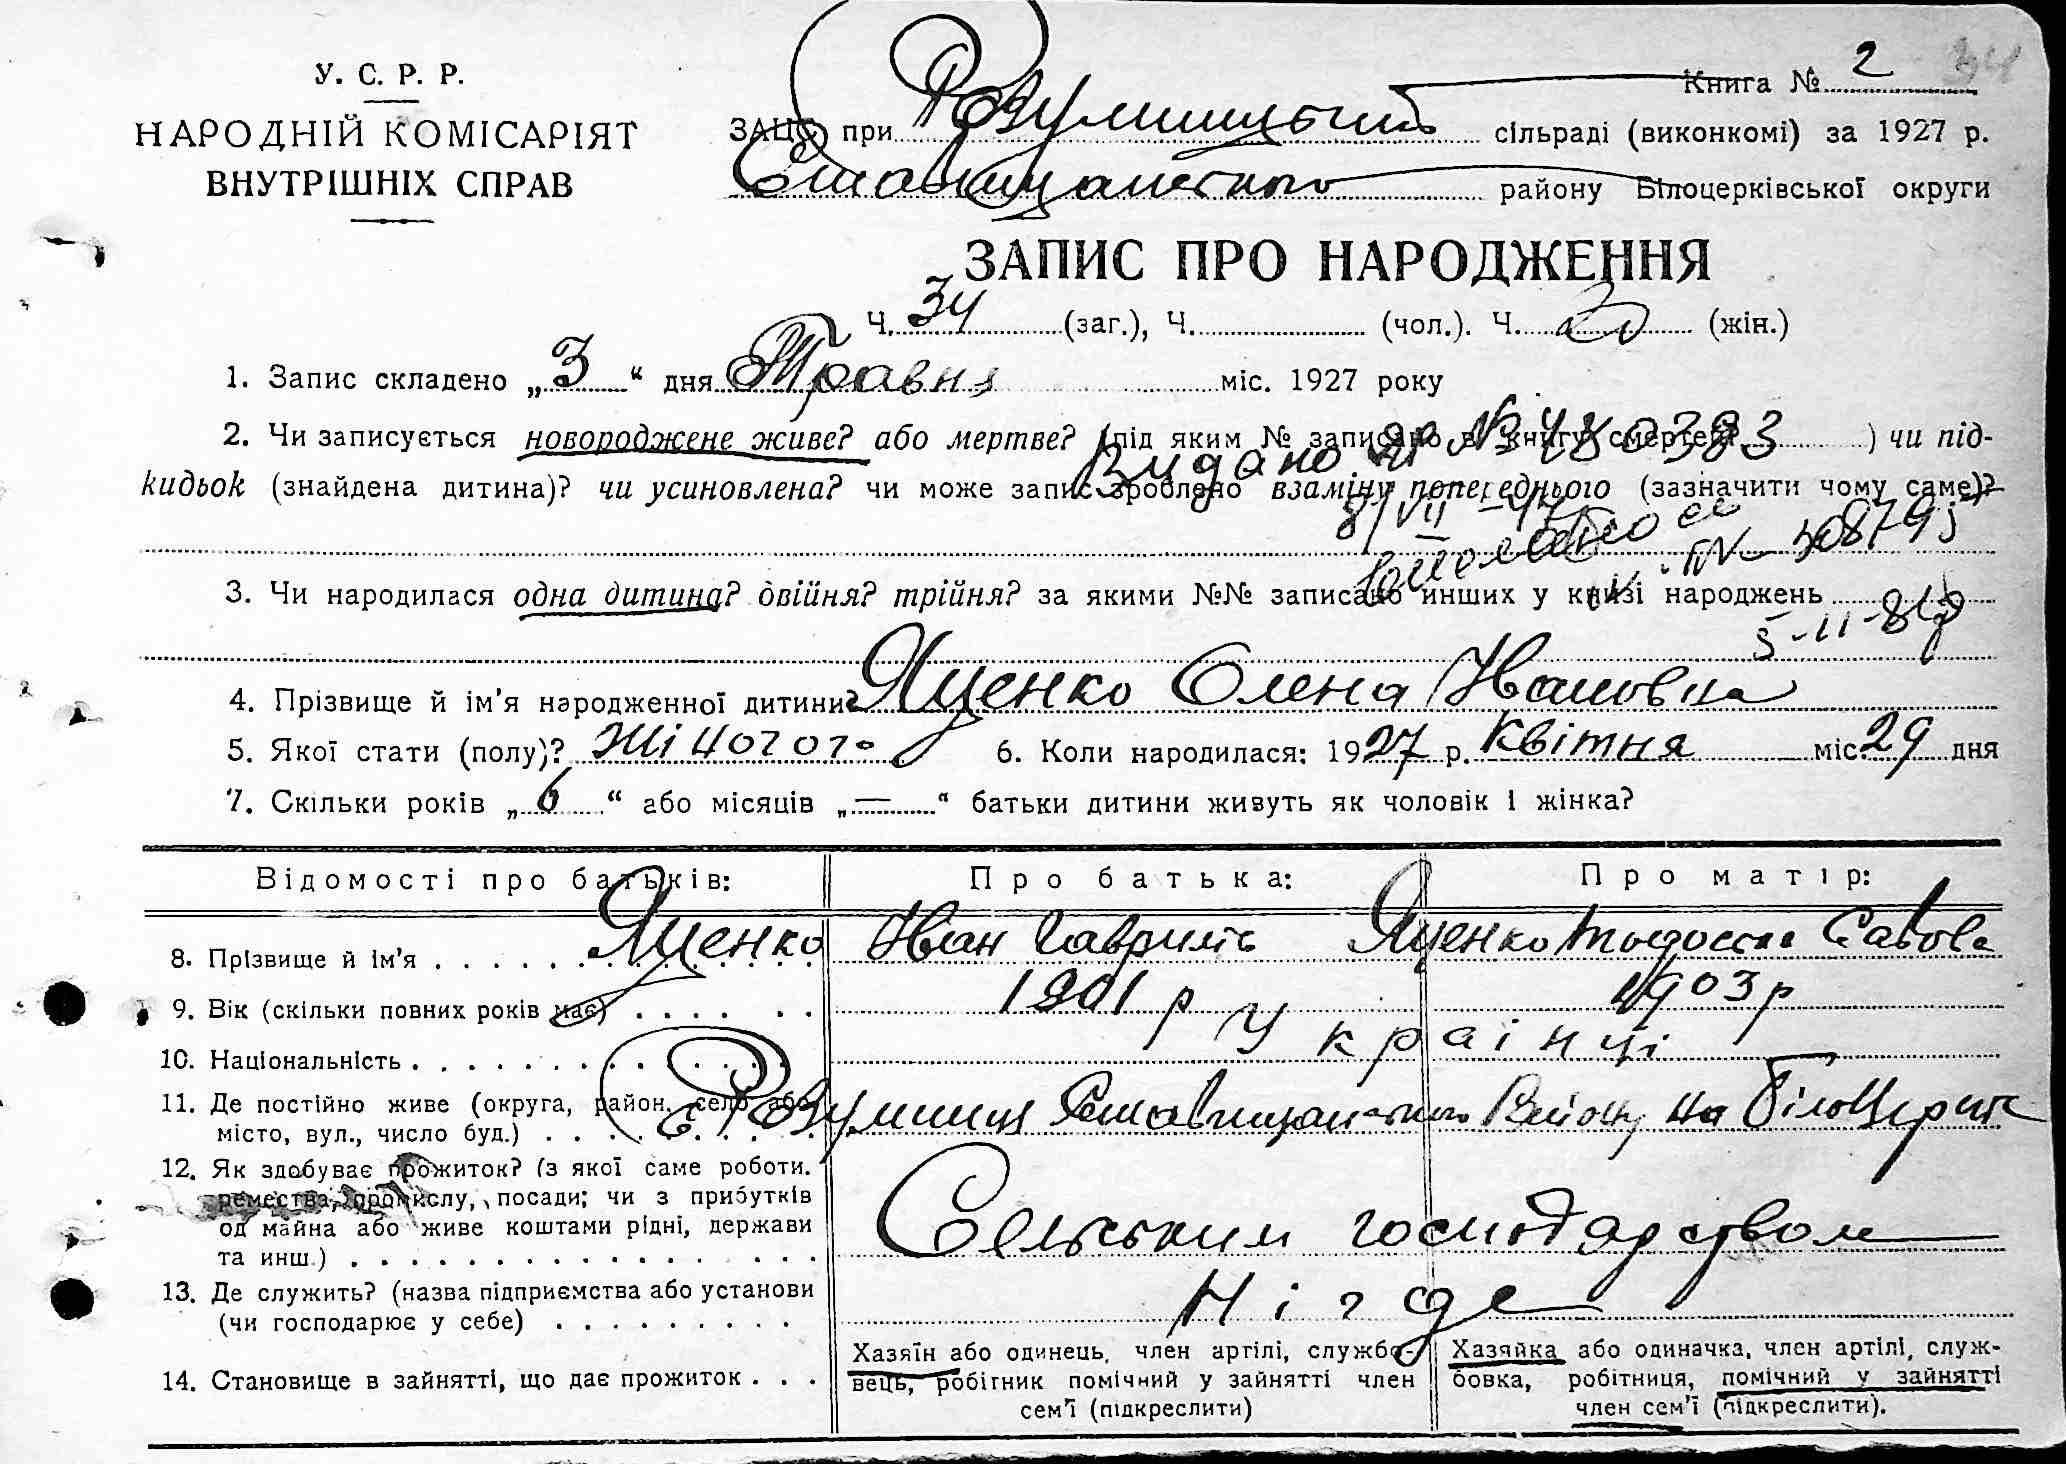 У. С. Р. Р.
НАРОДНІЙ КОМІСАРІЯТ
ВНУТРІШНІХ СПРАВ
Книга № 2 34
ЗАЦС при Розумницький сільраді (виконкомі) за 1927 р.
Ставищанського району Білоцерківської округи
ЗАПИС ПРО НАРОДЖЕННЯ
Ч. 34 (заг.), Ч. (чол.). Ч. 20 (жін.)
1. Запис складено „ 3 “ дня Травня міс. 1927 року
2. Чи записується новороджене живе? або мертве? (під яким № записано в книгу смертей ) чи під-
Видано № 480383
кидьок (знайдена дитина)? чи усиновлена? чи може запис зроблено взаміну попереднього (зазначити чому саме)?
8/VII – 47
3. Чи народилася одна дитина? двійня? трійня? за якими №№ записано инших у книзі народжень
5-11-81р
4. Прізвище й ім’я народженної дитини? Яценко Олена Ивановна
5. Якої стати (полу)? Жіночого 6. Коли народилася: 1927 р. Квітня міс. 29 дня
7. Скільки років „ 6 “ або місяців „ — “ батьки дитини живуть як чоловік і жінка?
Відомості про батьків: Про батька: Про матір:
8. Прізвище й ім’я . . . . Яценко Иван Гаврилів Яценко Тодоська Савова
9. Вік (скільки повних років має) . . . . 1901 р 1903 р
10. Національність . . . . Украінці
11. Де постійно живе (округа, район, село або
місто, вул., число буд.) . . . . с. Розумниці Ставищанського Району на Білоцерків
12. Як здобуває прожиток? (з якої саме роботи.
ремества, промислу, посади; чи з прибутків
од майна або живе коштами рідні, держави
та инш.) . . . . Сельським господарством
13. Де служить? (назва підприємства або установи
(чи господарює у себе) . . . . Нігде
14. Становище в зайнятті, що дає прожиток . . .
Хазяїн або одинець, член артілі, службо-
вець, робітник помічний у зайнятті член
сем’ї (підкреслити)
Хазяйка або одиначка, член артілі, служ-
бовка, робітниця, помічний у зайнятті
член сем’ї (підкреслити).